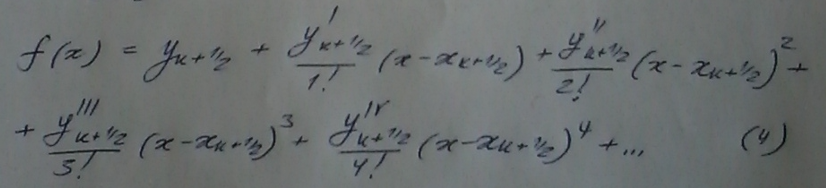 f(x) = y_{k+1/2} + \frac{y^{I}_{k+1/2}}{1!} (x-x_{k+1/2}) + \frac{y^{II}_{k+1/2}}{2!} (x-x_{k+1/2})^2 +
+ \frac{y^{III}_{k+1/2}}{3!} (x-x_{k+1/2})^3 + \frac{y^{IV}_{k+1/2}}{4!} (x-x_{k+1/2})^4 + ... (4)